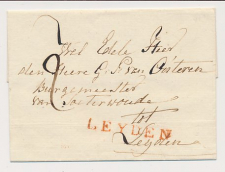 Wel Edele Heer
den Heere G. P. van Outeren
Burgemeester
van Oosterwoude
tot
LEYDEN
Leyden